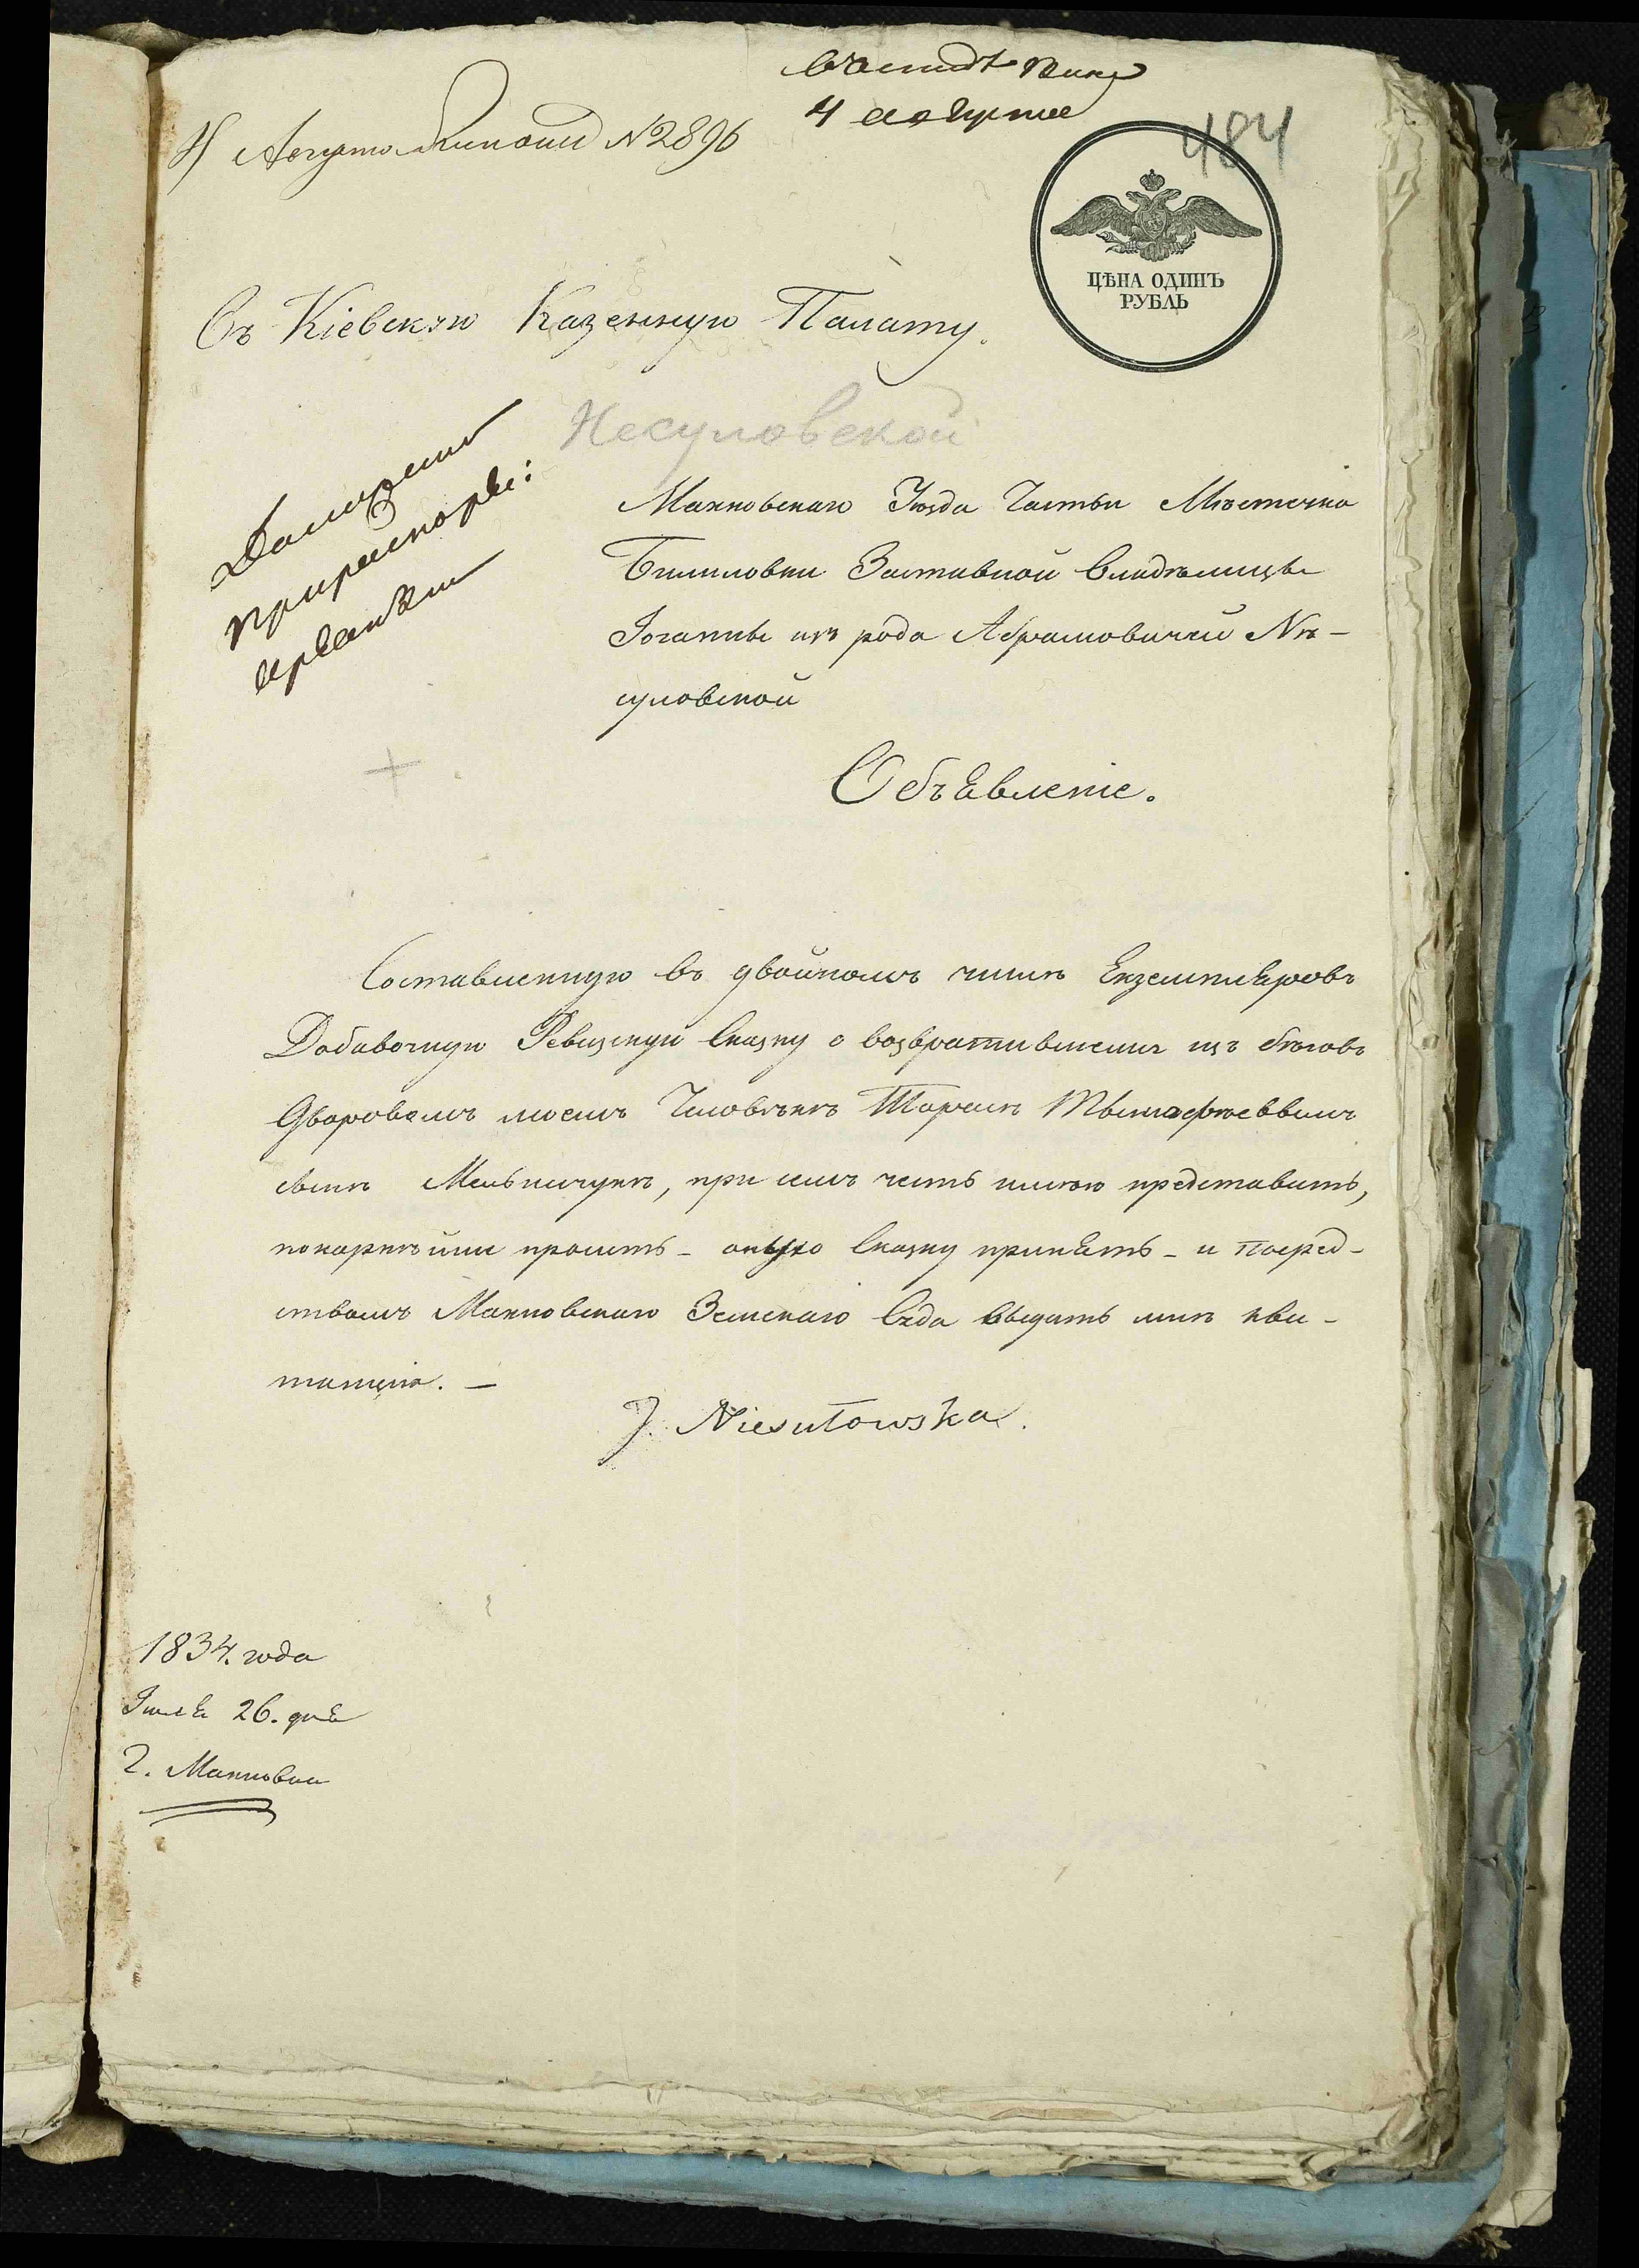 4 августа
№ 2896
484
ЦѢНА ОДИНЪ
РУБЛЬ
Въ Кіевскую Казенную Палату.
Несуловской
Махновскаго Уѣзда Части Мѣстечка
Билиловки Заставной Владѣлицы
Іоганны изъ рода Абрамовичей Нѣ-
суловской
Объявленіе.
Составленную въ двойномъ числѣ Екземпляровъ
Добавочную Ревизскую Сказку о возвратившемся изъ бѣговъ
Дворовомъ моемъ Человѣкѣ
сынѣ Мельничукѣ, при семъ честь имѣю представить,
покорнѣйше просить - оную Сказку принять - и посред-
ствомъ Махновскаго Земскаго Суда выдать мнѣ кви-
танцію. -
J. Niesułowska.
1834. года
Іюля 26. дня
Г. Махновка